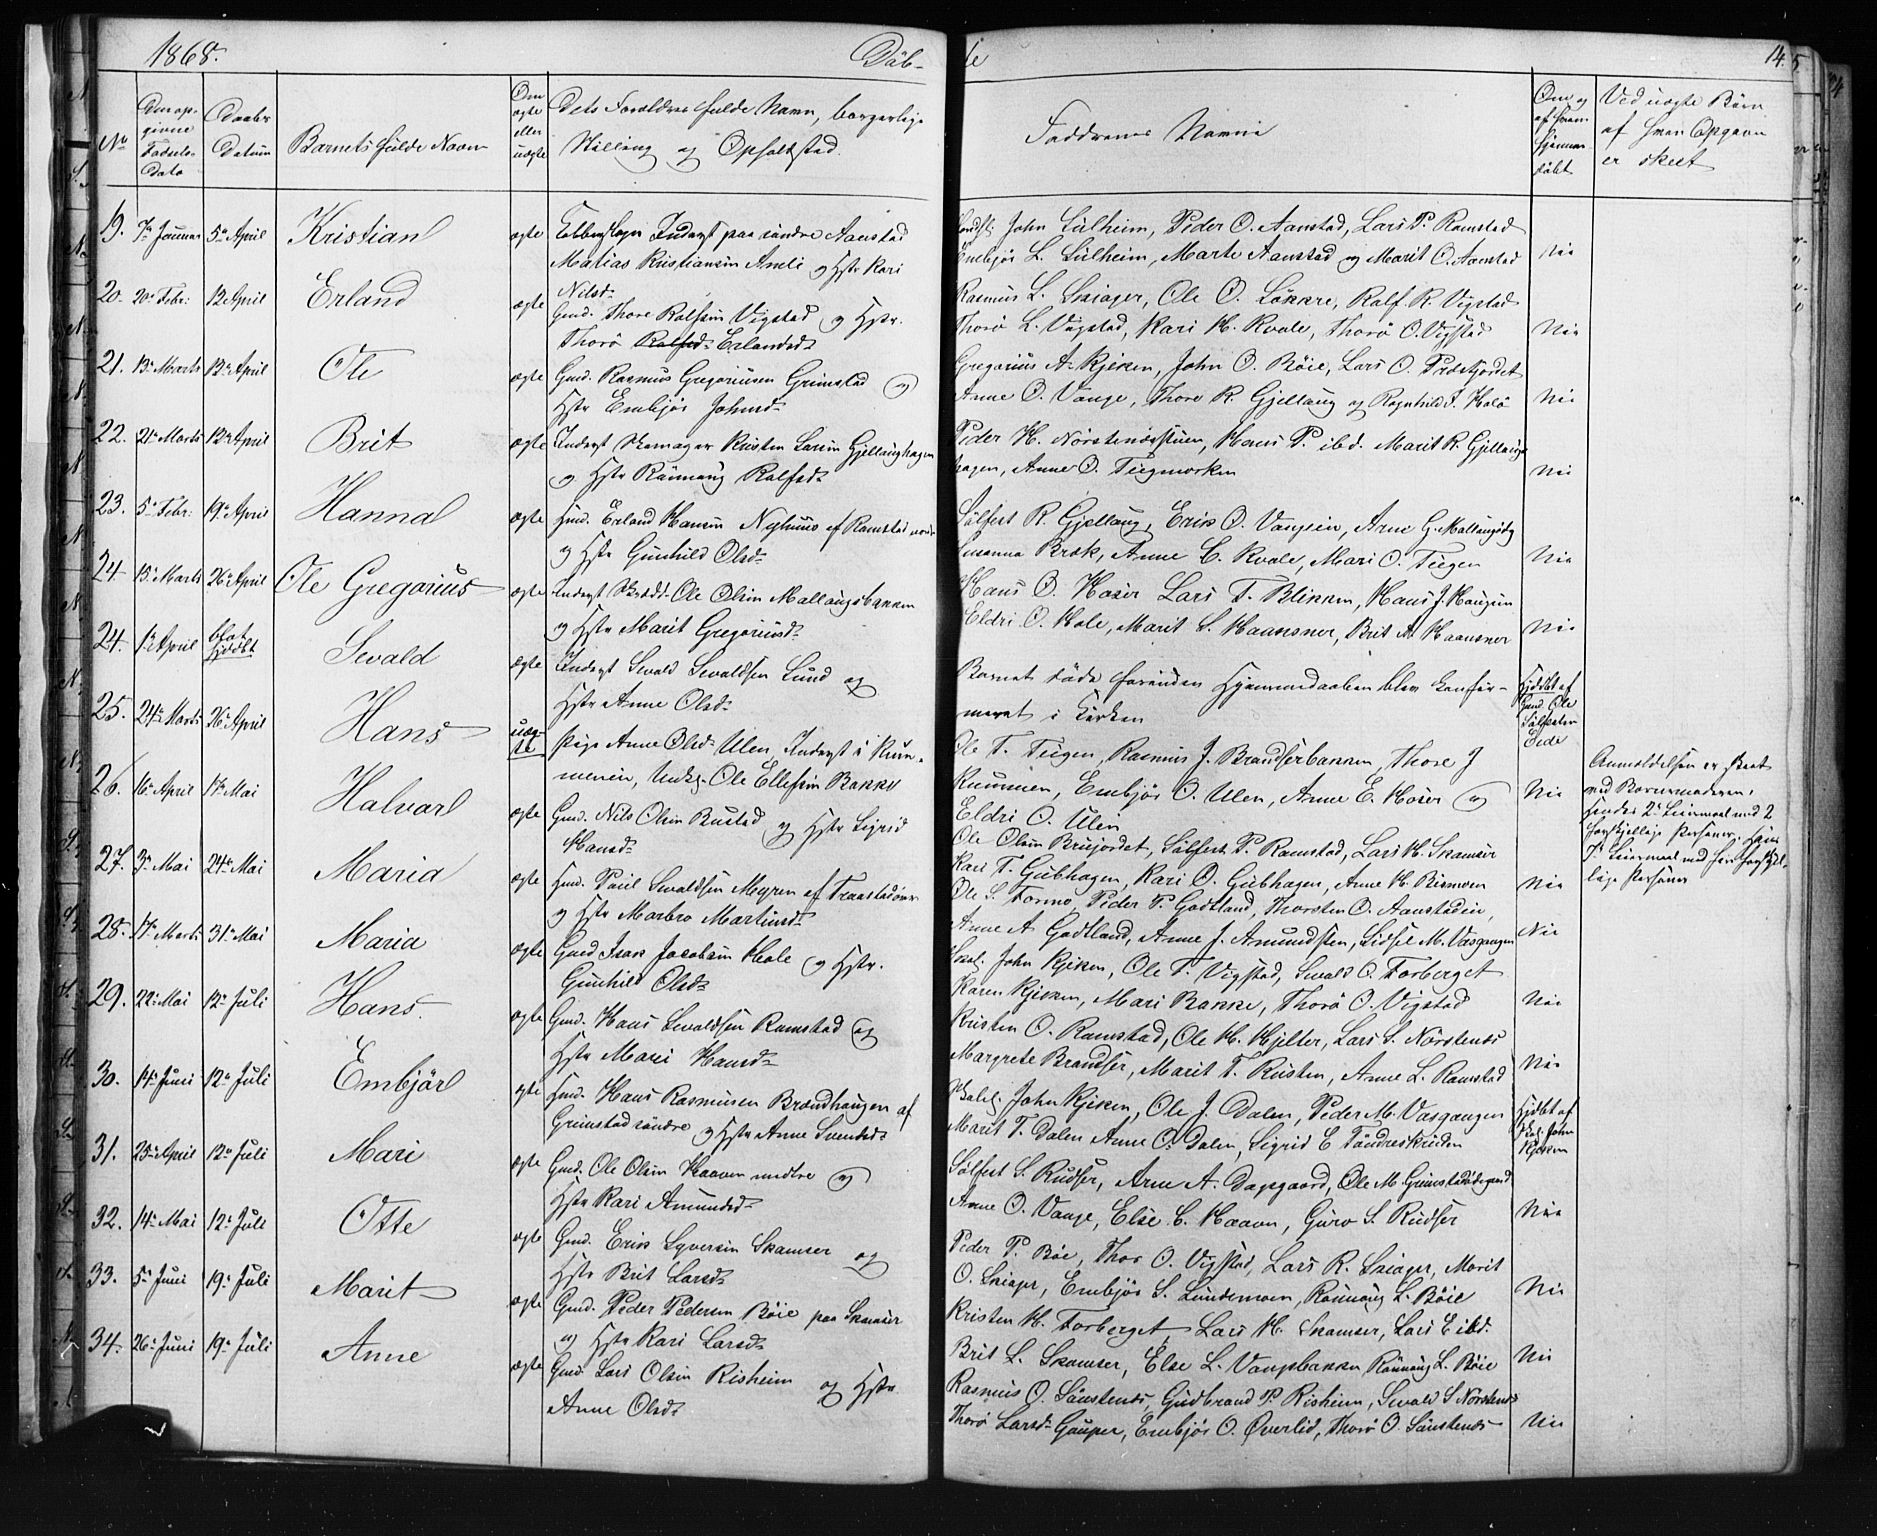 1868.
Døb-
te
14.
No
Den op-
givne
Fødsels-
Dato
Daabs
Datum
Barnets fulde Navn
Om
ægte
eller
uægte
Dets Forældres fulde Navn, borgerlige
Stilling og Opholdssted.
Faddrenes Navne
Om og
af hvem
hjemme-
døbt
Ved uægte Børn
af hvem Opgaven
er skeet
19. 7de Januar 5te April Kristian ægte
Inderst paa søndre Aanstad
Matias Kristiansen og Hstr Kari
Nilsd:
John Sulheim, Peder O. Aanstad, Lars P. Ramstad
Embjør L. Sulheim, Marte Aanstad og Marit O. Aanstad
Nei
20. 20de Febr: 12te April Erland ægte
Gmd. Thore Rolfsen Vigstad og Hstr.
Thorø Rolfsd: Erlandsd:
Rasmus L. Sniager, Ole O. Løkkre, Rolf R. Vigstad
Thorø L. Vigstad, Kari H. Kvale, Thorø O. Vigstad
Nei
21. 13de Marts 12te April Ole ægte
Gmd. Rasmus Gregoriusen Grimstad og
Hstr Embjør Johnsd:
Gregorius A. Kjeken, John O. Bøie, Lars O.
Anne O. Vange, Thore R. Gjellaug og Ragnhild J. Hole
Nei
22. 21de Marts 12te April Brit ægte
Inderst Skomager Kristen Larsen Gjellaughagen
og Hstr Rønnaug Rolfsd:
Peder H. Nørstenæsstuen, Hans P. ibd. Marit R. Gjellaug-
hagen, Anne O. Tiegmorken
Nei
23. 5te Febr: 19de April Hanna ægte
Hmd. Erland Hansen Nyhuus af Ramstad
og Hstr Gunhild Olsd:
Sølfest R. Gjellaug, Erik O. Vangen, Arne G. Mallaugsbg
Susanna Brek, Anne C. Kvale, Mari O. Tiegen
Nei
24. 15de Marts 26de April Ole Gregorius ægte
Inderst Ole Olsen Mallaugsbakken
og Hstr Marit Gregoriusd:
Hans O. Hoser Lars T. Blikken, Hans J. Haugen
Eldri O. Hole, Marit S. Haansner, Brit M. Haansner
Nei
24. 1ste April
blot
hjdøbt
Sevald ægte
Inderst Sevald Sevaldsen Lund og
Hstr Anne Olsd:
Barnet døde forinden Hjemmedaaben blev konfir-
meret i Kirken
Hjdøbt af
Gmd. Ole
Sølfestsen
Eide
25. 24de Marts 26de April Hans
uæg-
te
Pige Anne Olsd: Ulen, Inderst i
Ungk. Ole Ellefsen Bakke
Ole T. Tiegen, Rasmus J. Brandserbakken, Thore J
Embjør O. Ulen, Anne E. Hoser og
Eldri O. Ulen
Nei
Anmeldelsen er skeet
ved Barnemoderen,
hendes 2det Leiermaal med 2
forskjellige Personer, hans
Leiermaal med
Personer
26. 16de April 17de Mai Halvar ægte
Gmd. Nils Olsen Bustad og Hstr Sigrid
Hansd:
Ole Olsen Brujordet, Sølfest P. Ramstad, Lars H. Skamser
Kari T. Gubhagen, Kari O. Gubhagen, Anne H. Bismoen
Nei
27. 3de Mai 24de Mai Maria ægte
Hmd. Poul Sevaldsen Myren af
og Hstr Marbro Martinusd:
Ole S. Formo, Peder P. Godtland, Thorsten O. Aanstaden,
Anne A. Godtland, Anne J. Amundsten, Lidsel M. Vasgangen
Nei
28. 17de Marts 31te Mai Maria ægte
Gmd Isak Jacobsen Hole og Hstr.
Gunhild Olsd:
John Kjeken, Ole T. Vigstad, Sevald O. Forberget
Karen Kjeken, Mari Bakke, Thorø O. Vigstad
Nei
29. 22de Mai 12te Juli Hans. ægte
Gmd. Hans Sevaldsen Ramstad og
Hstr Mari Hansd:
Kristen O. Ramstad, Ole H. Hjelter, Lars S. Nørstenæs
Margrete Brandser, Marit T. Kristen, Anne L. Ramstad
Nei
30. 14de Juni 12te Juli Embjør ægte
Hmd. Hans Rasmusen Brændhaugen af
Grimstad søndre og Hstr Anne Svendsd:
John Kjeken, Ole J. Dalen, Peder M. Vasgangen
Marit T. Dalen Anne O. Dalen, Sigrid E
Hjdøbt af
John
Kjeken
31. 23de April 12te Juli Mari ægte
Gmd. Ole Olsen Haaven nedre og
Hstr Kari Amundsd:
Sølfest S. Rudser, Arne A. Dagsgaard, Ole M.
Anne O. Vange, Else C. Haaven, Guro S. Rudser
Nei
32. 14de Mai 12te Juli Otte ægte
Gmd. Erik Syversen Skamser og
Hstr Brit Larsd:
Peder P. Bøe, Thor O. Vigstad, Lars R. Sniager, Marit
O. Sniager, Embjør S. Lundemoen, Rønnaug L. Bøie
Nei
33. 5te Juni 19de Juli Marit ægte
Gmd. Peder Pedersen Bøie paa Skamser
og Hstr Kari Larsd:
Kristen H. Forberget, Lars H. Skamser, Lars E ibd.
Brit L. Skamser, Else L. Vangsbakken Rønnaug L. Bøie
Nei
34. 26de Juni 19de Juli Anne ægte
Gmd Lars Olsen Risheim og Hstr
Anne Olsd:
Rasmus O. Sønstenæs, Gudbrand P. Risheim, Sevald S Nørstenæs
Thorø Larsd: Gauper, Embjør O. Øverlid, Thorø O. Sønstenæs
Nei